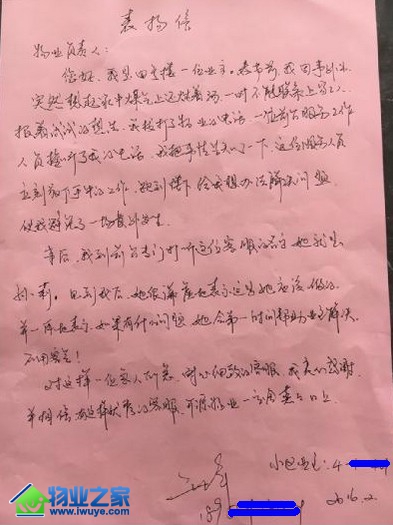 表扬信
物业负责人:
您好,我是四支楼一位业主。春节前,我因事外出,
突然想起家中煤气上还炖着汤,一时不能联系上家人,
报着试试的想法,我拨打了物业的电话,一位前台服务工作
人员接听了我的电话,我把事情告知了一下,这位服务人员
立刻放下手中的工作,跑到楼下给我想办法解决问题
使我避免了一场意外发生
事后,我到前台专门打听这位客服的名字她就是
莉。见到我后,她很谦虚地表示这是她应该做的
并一再地表示,如果有什么问题她会第一时间帮助业主解决,
不用客气!
对这样一位急人所急,耐心细致的客服,我表示感谢
并相信有这样优秀的客服,物业一定会蒸蒸日上
小区业主:4-
189
2016.2.
物业之家
www.iwuye.com